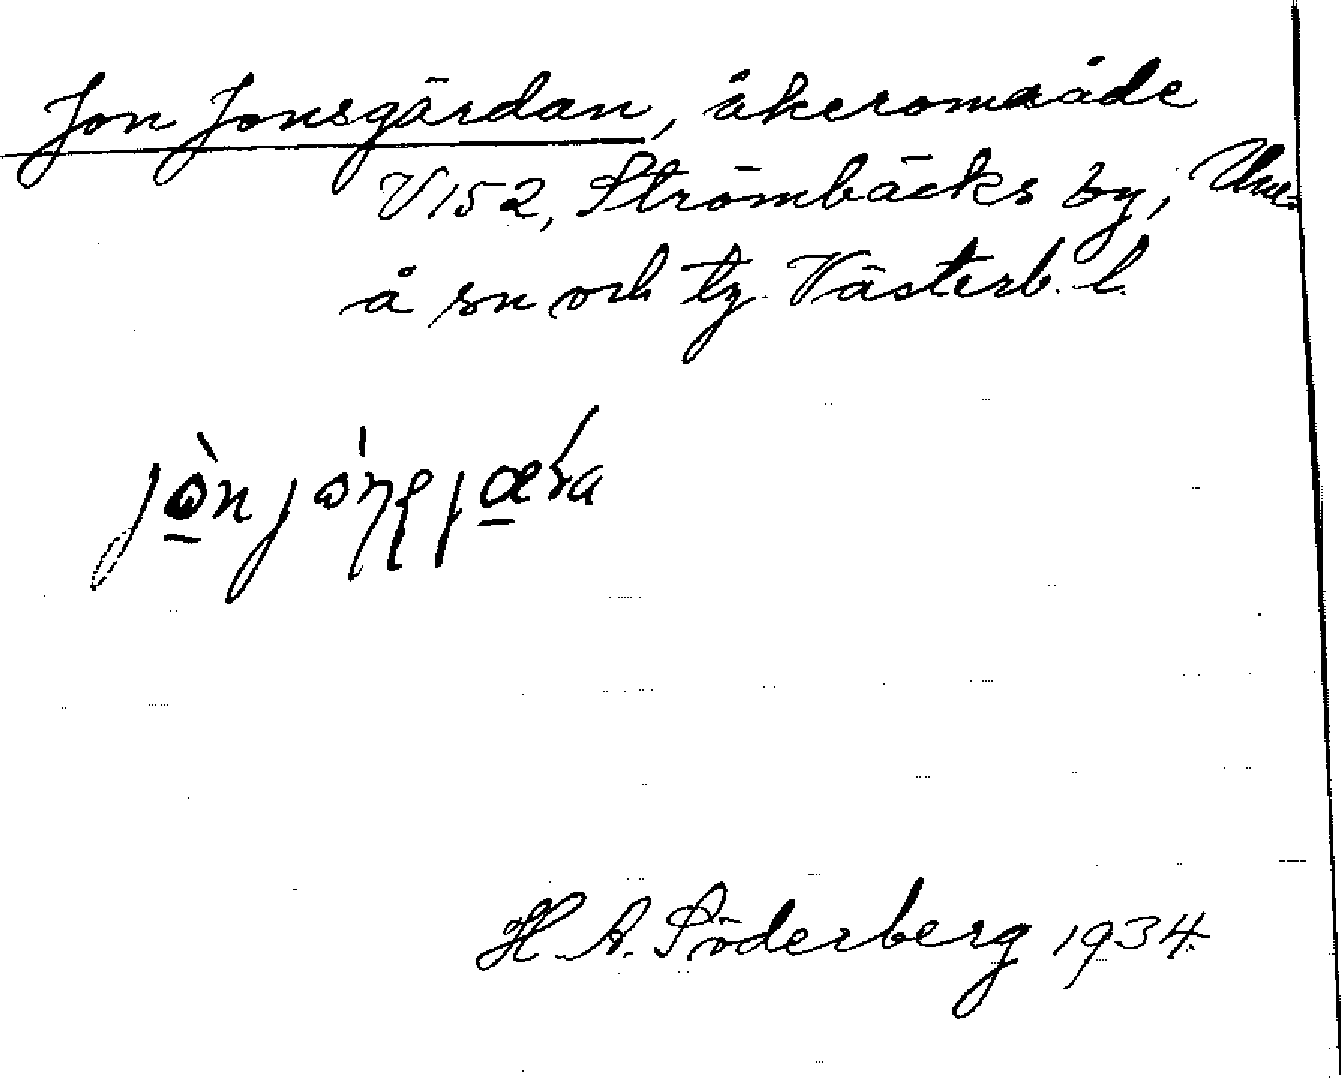 Jon Jonsgärdan, åkerområde
V152, Strömbäcks by, Ume-
å sn och tg. Västerb. l.
H. A. Söderberg 1934.